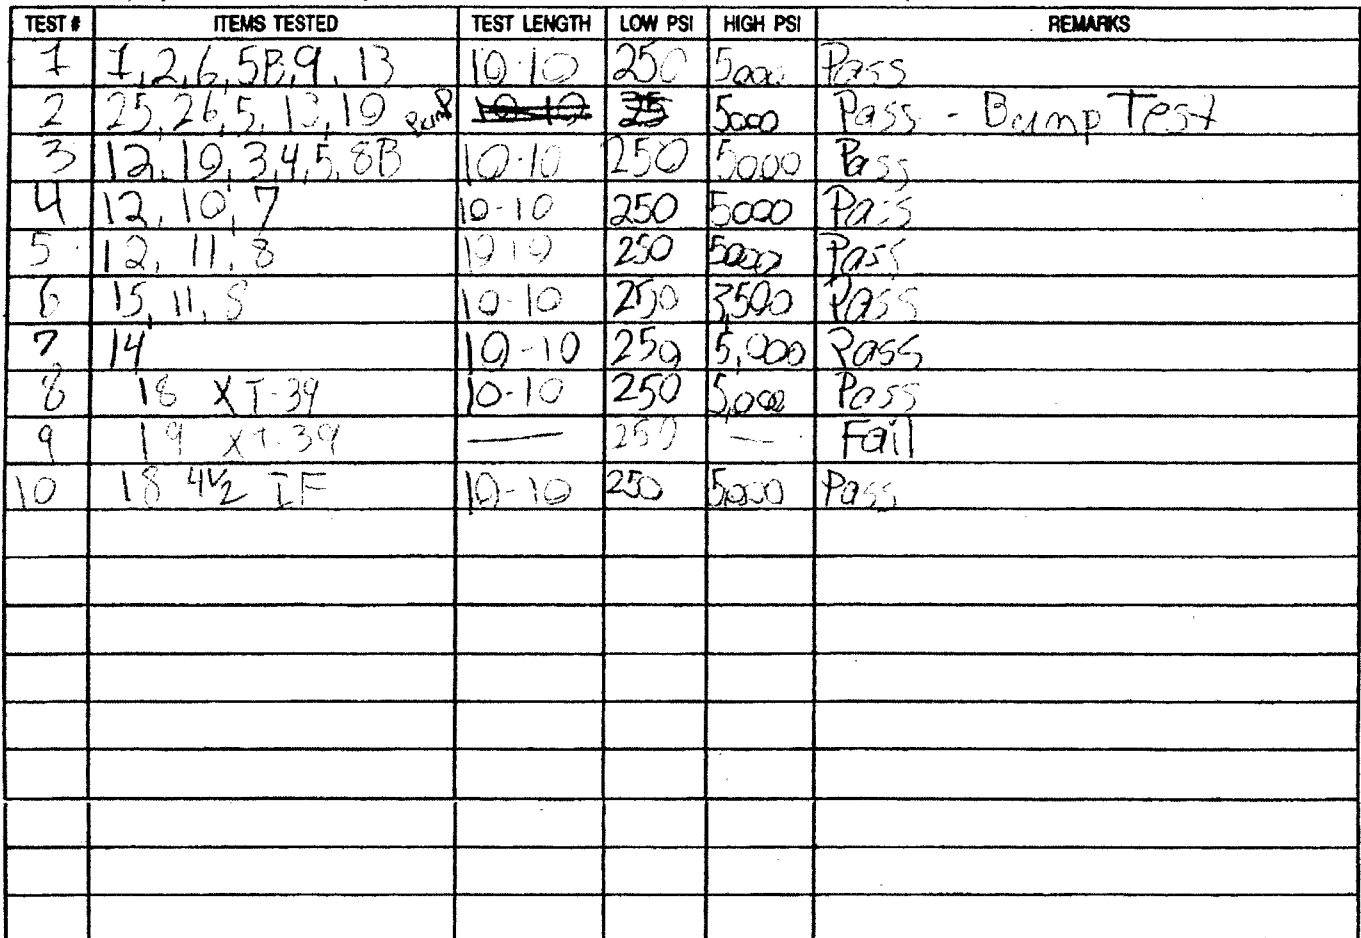 TEST # ITEMS TESTED TEST LENGTH LOW PSI HIGH PSI REMARKS
1 1, 2, 6, 5B, 9, 13 10-10 250 5000 Pass
2 25, 26, 5, 13, 10 Bump 5000 Pass - Bump Test
3 12, 10, 3, 4, 5, 8B 10-10 250 5000 Pass
4 12, 10, 7 10-10 250 5000 Pass
5 12, 11, 8 10 10 250 5000 Pass
6 15, 11, 8 10-10 250 3500 Pass
7 14 10-10 250 5,000 Pass
8 18 XT-39 10-10 250 5,000 Pass
9 19 XT-39 — 250 — Fail
10 18 4½ IF 10-10 250 5000 Pass